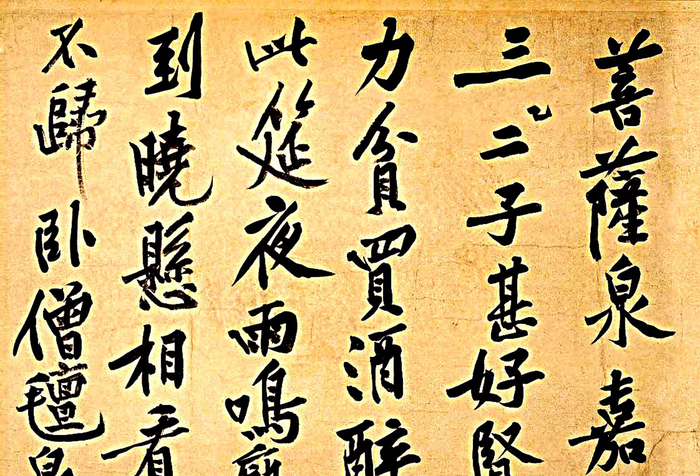 菩薩泉嘉
三二子甚好賢
力貧買酒醉
此筵夜雨鳴
到曉懸相看
不歸臥僧氈